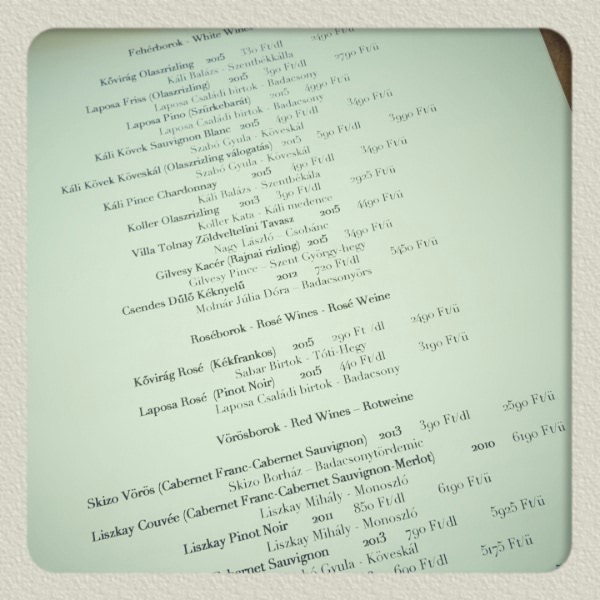 Fehérborok - White Wines
Kővirág Olaszrizling 2015 330 Ft/dl 2490 Ft/ü
Káli Balázs - Szentbékkálla
Laposa Friss (Olaszrizling) 2015 390 Ft/dl 2790 Ft/ü
Laposa Családi birtok - Badacsony
Laposa Pino (Szürkebarát) 2015 4990 Ft/ü
Laposa Családi birtok - Badacsony
Káli Kövek Sauvignon Blanc 2015 490 Ft/dl 3490 Ft/ü
Szabó Gyula - Köveskál
Káli Kövek Köveskál (Olaszrizling válogatás) 2015 590 Ft/dl 3990 Ft/ü
Szabó Gyula - Köveskál
Káli Pince Chardonnay 2015 490 Ft/dl 3490 Ft/ü
Káli Balázs - Szentbékála
Koller Olaszrizling 2013 390 Ft/dl 2925 Ft/ü
Koller Kata - Káli medence
Villa Tolnay Zöldveltelini Tavasz 2015 4490 Ft/ü
Nagy László - Csobánc
Gilvesy Kacér (Rajnai rizling) 2015 3490 Ft/ü
Gilvesy Pince - Szent György-hegy
Csendes Dűlő Kéknyelű 2012 720 Ft/dl 5450 Ft/ü
Molnár Júlia Dóra - Badacsonyörs
Roséborok - Rosé Wines - Rosé Weine
Kővirág Rosé (Kékfrankos) 2015 290 Ft /dl 2490 Ft/ü
Sabar Birtok - Tóti-Hegy
Laposa Rosé (Pinot Noir) 2015 440 Ft/dl 3190 Ft/ü
Laposa Családi birtok - Badacsony
Vörösborok - Red Wines – Rotweine
Skizo Vörös (Cabernet Franc-Cabernet Sauvignon) 2013 390 Ft/dl 2590 Ft/ü
Skizo Borház – Badacsonytördemic
Liszkay Couvée (Cabernet Franc-Cabernet Sauvignon-Merlot) 2010 6190 Ft/ü
Liszkay Mihály - Monoszló
Liszkay Pinot Noir 2011 850 Ft/dl 6190 Ft/ü
Liszkay Mihály - Monoszló
Sauvignon 2013 790 Ft/dl 5925 Ft/ü
Gyula - Köveskál
690 Ft/dl 5175 Ft/ü